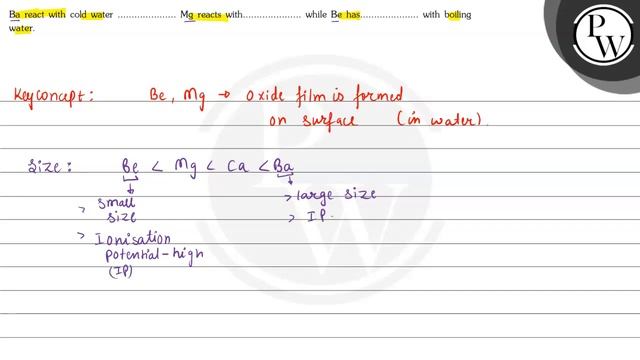 Ba react with cold water ..................... Mg reacts with..................... while Be has..................... with boiling
water.
PW
Key concept : Be, Mg → Oxide film is formed
on surface (in water).
Size : Be < Mg < Ca < Ba
> small size
> large size
> Ionisation Potential - high (IP)
> IP.
PW